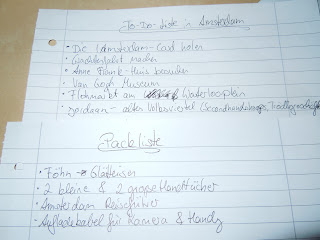 To-Do-Liste in Amsterdam
• Die I Amsterdam-Card holen
• Grachtenfahrt machen
• Anne Frank-Haus besuchen
• Van Gogh Museum
• Flohmarkt am Waterlooplein
• Jordaan - altes Volksviertel (Secondhandshops,
Packliste
• Föhn → Glätteisen
• 2 kleine & 2 große Handtücher
• Amsterdam Reiseführer
• Aufladekabel für Kamera & Handy